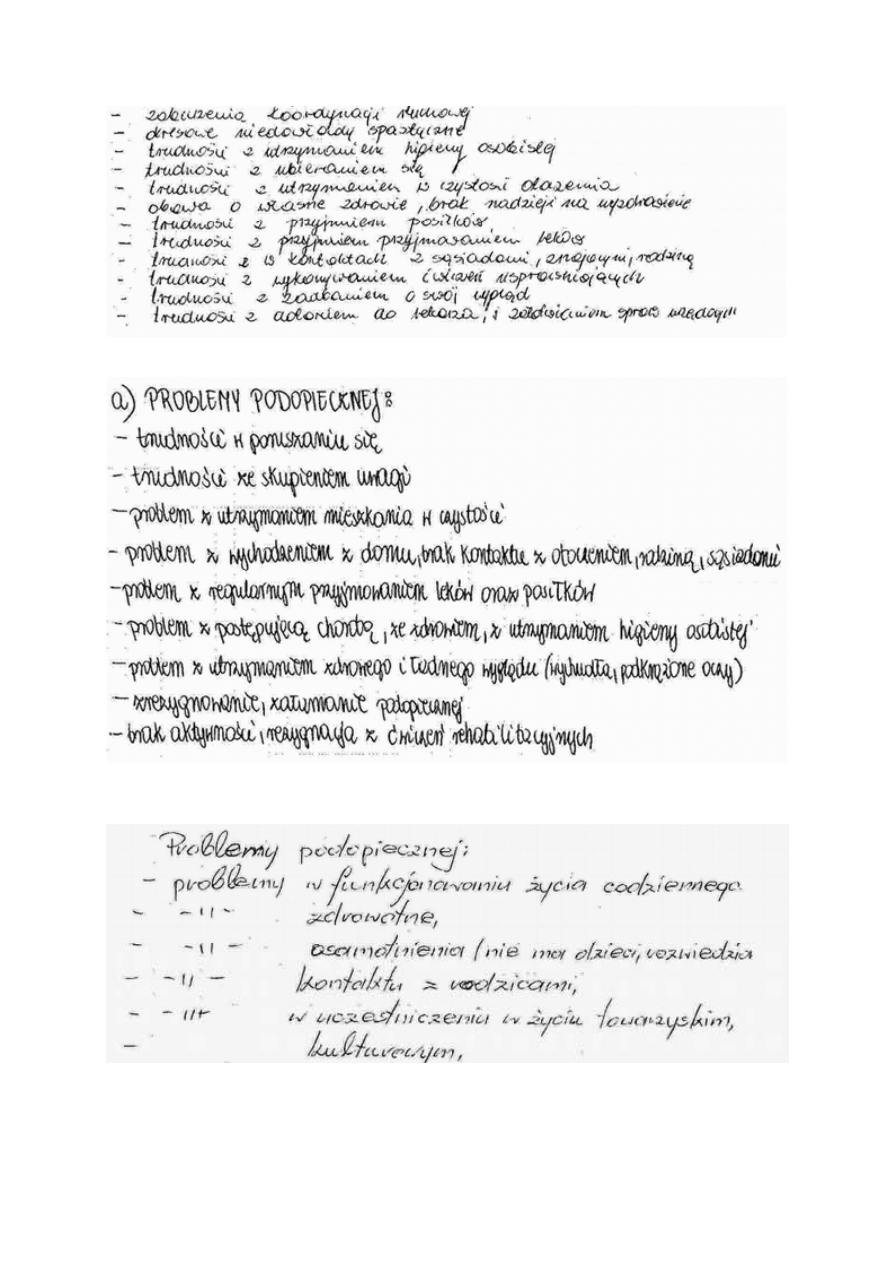 - zaburzenia koordynacji ruchowej
- okresowe niedowłady spastyczne
- trudności z utrzymaniem higieny osobistej
- trudności z ubieraniem się
- trudności z utrzymaniem w czystości otoczenia
- obawa o własne zdrowie, brak nadzieji na wyzdrowienie
- trudności z przyjmiem posiłków
- trudności z przyjmiem przyjmowaniem leków
- trudności z w kontaktach z sąsiadami, znajomymi, rodziną
- trudności z wykonywaniem ćwiczeń usprawniających
- trudności z zadbaniem o swój wygląd
- trudności z dotarciem do lekarza, i załatwianiem spraw urzędowych
a) PROBLEMY PODOPIECZNEJ:
- trudności w poruszaniu się
- trudności ze skupieniem uwagi
- problem z utrzymaniem mieszkania w czystości
- problem z wychodzeniem z domu, brak kontaktu z otoczeniem, rodziną, sąsiadami
- problem z regularnym przyjmowaniem leków oraz posiłków
- problem z postępującą chorobą, ze zdrowiem, z utrzymaniem higieny osobistej
- problem z utrzymaniem zdrowego i ładnego wyglądu (wychudła, podkrążone oczy)
- zrezygnowanie, załamanie podopiecznej
- brak aktywności, rezygnacja z ćwiczeń rehabilitacyjnych
Problemy podopiecznej:
- problemy w funkcjonowaniu życia codziennego
- -11- zdrowotne,
- -11- osamotnienia (nie ma dzieci, rozwiedzia
- -11- kontaktu z rodzicami,
- -11- w uczestniczeniu w życiu towarzyskim,
- kulturowym,